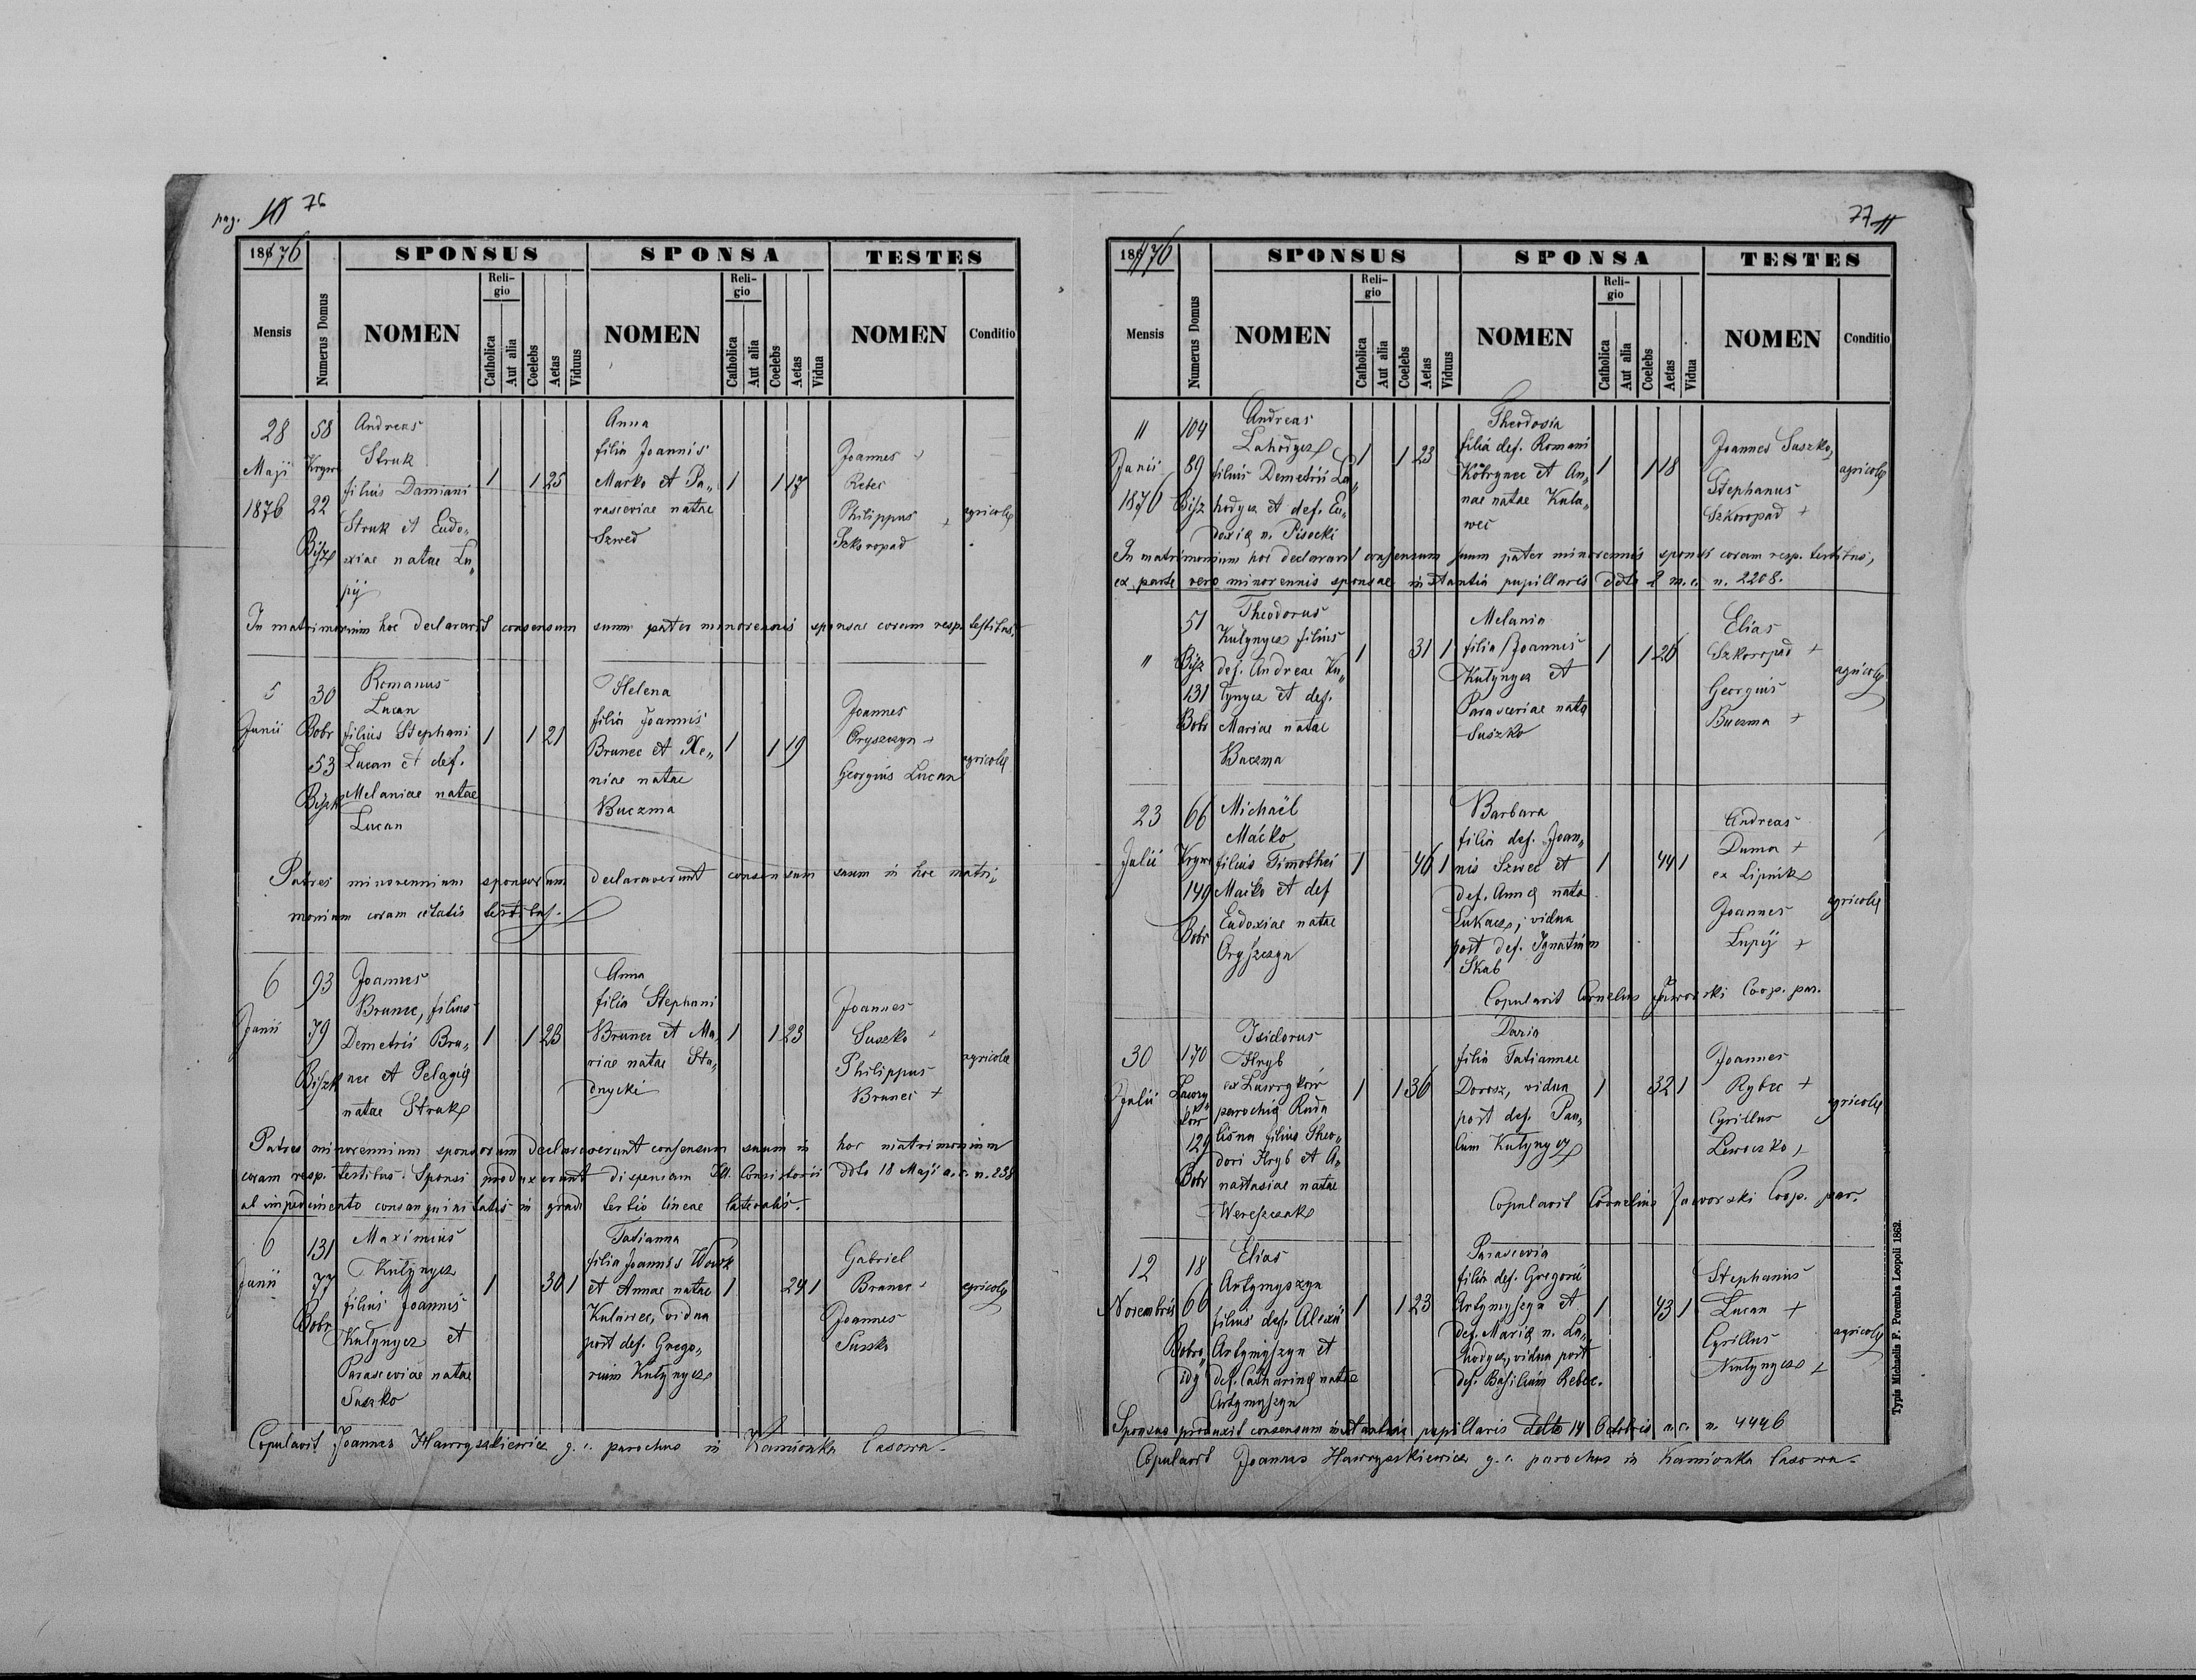 pag. 76
1876
SPONSUS SPONSA TESTES
Mensis Numerus Domus NOMEN Religio Catholica Aut alia Coelebs Aetas Viduus NOMEN Religio Catholica Aut alia Coelebs Aetas Vidua NOMEN Conditio
28 Maji 1876
58
22
Andreas
Struk
filius Damiani
Struk et Eudo„
xiae natae Lu„
pij
1 1 25
Anna
filia Joannis
Marko et Pa„
rasceviae natae
Szwed
1 1 17
Joannes
Rebec
Philippus
Szkoropad
agricolę
In matrimonium hoc declaravit consensum suum pater minorennis sponsae coram resp. testibus.
5 Junii
30 Bobr
53
Romanus
Lucan
filius Stephani
Lucan et def.
Melaniae natae
Lucan
1 1 21
Helena
filia Joannis
Brunec et Xe„
niae natae
Buczma
1 1 19
Joannes
Oryszczyn
Georgius Lucan
agricolę
Patres minorennium sponsorum declaraverunt consensum suum in hoc matri„
monium coram citatis testibus.
6 Junii
93
79
Joannes
Brunec, filius
Demetrii Bru„
nec et Pelagię
natae Struk
1 1 23
Anna
filia Stephani
Brunec et Ma„
riae natae Stu„
dnycki
1 1 23
Joannes
Suszko
Philippus
Brunec +
agricolae
Patres minorennium sponsorum declaraverunt consensum suum in hoc matrimonium
coram resp. testibus. Sponsi produxerunt dispensam Consistorii ddto 18 Maji a. c. n. 238
ab impedimento consanguinitatis in gradu tertio lineae lateralis.
6 Junii
131
77
Bobr
Maximius
Kutynycz
filius Joannis
Kutynycz et
Parasceviae natae
Suszko
1 30 1
Tatianna
filia Joannis Wowk
et Annae natae
Kulawec, vidua
post def. Grego„
rium Kutynycz
1 24 1
Gabriel
Brunec
Joannes
Suszko
agricolę
Copulavit Joannes Hawryszkiewicz g. c. parochus in Kamionka Lasowa.
77
1876
SPONSUS SPONSA TESTES
Mensis Numerus Domus NOMEN Religio Catholica Aut alia Coelebs Aetas Viduus NOMEN Religio Catholica Aut alia Coelebs Aetas Vidua NOMEN Conditio
11 Junii 1876
104
89
Bisz
Andreas
Lahodycz
filius Demetrii La„
hodycz et def. Eu„
doxię n. Pisocki
1 1 23
Theodosia
filia def. Romani
Kobrynec et An„
nae natae Kula„
wec
1 1 18
Joannes Suszko,
Stephanus
Szkoropad +
agricolę
In matrimonium hoc declaravit consensum suum pater minorennis sponsi coram resp. testibus,
ex parte vero minorennis sponsae instantia pupillaris ddto m. c. n. 2208.
"
51
Bisz
131
Bobr
Theodorus
Kutynycz filius
def. Andreae Ku„
tynycz et def.
Mariae natae
Buczma
1 31 1
Melania
filia Joannis
Kutynycz et
Parasceviae natę
Suszko
1 1 26
Elias
Szkoropad +
Georgius
Buczma +
agricolę
23 Julii
66
149
Bobr
Michaël
Macko
filius Timothei
Macko et def
Eudoxiae natae
Oryszczyn
1 46 1
Barbara
filia def. Joan„
nis Szwec et
def. Annę natę
Lukacz, vidua
post def. Ignatium
Skab
1 44 1
Andreas
Duma +
ex Lipnik
Joannes
Lupij +
agricolę
Copulavit Cornelius Jaworski Coop. par.
30 Julii
170
Lawry„
kow
129
Bobr
Isidorus
Hryb
ex Lawryków
parochię Ruda
filius Theo„
dori Hryb et A„
nastasiae natae
Wereszczak
1 1 36
Daria
filia Tatiannae
Dorosz, vidua
post def. Pau„
lum Kutynycz
1 32 1
Joannes
Rybec +
Cyrillus
Lewoczko,
agricolę
Copulavit Cornelius Jaworski Coop. par.
12 Novembris
18
66
Elias
Artymyszyn
filius def. Alexii
Artymyszyn et
def. Catharinę natae
Artymyszyn
1 1 23
Parascevia
filia def. Gregorii
Artymyszyn et
def. Marię n. La„
hodycz, vidua post
def. Basilium Rebec.
1 43 1
Stephanus
Lucan +
Cyrillus
Kutynycz +
agricolę
Sponsus produxit consensum instantiae pupillaris ddto 14 Octobris a. c. n. 4446
Copulavit Joannes Hawryszkiewicz g. c. parochus in Kamionka Lasowa.
Typis Michaelis F. Poremba Leopoli 1862.